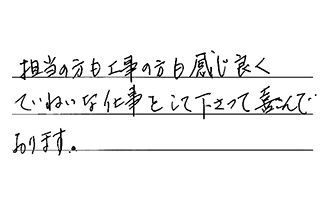 担当の方も工事の方も感じ良く
ていねいな仕事をして下さって喜んで
おります。